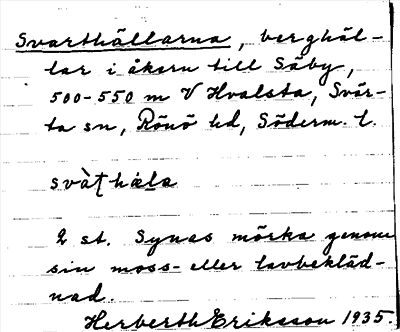 Svarthällarna, berghäl-
lar i åkern till Säby,
500-550 m V Hvalsta, Svär-
ta sn, Rönö hd, Söderm. l.
svàʈhæla
2 st. Synas mörka genom
sin moss- eller lavbekläd-
nad.
Herberth Eriksson 1935.